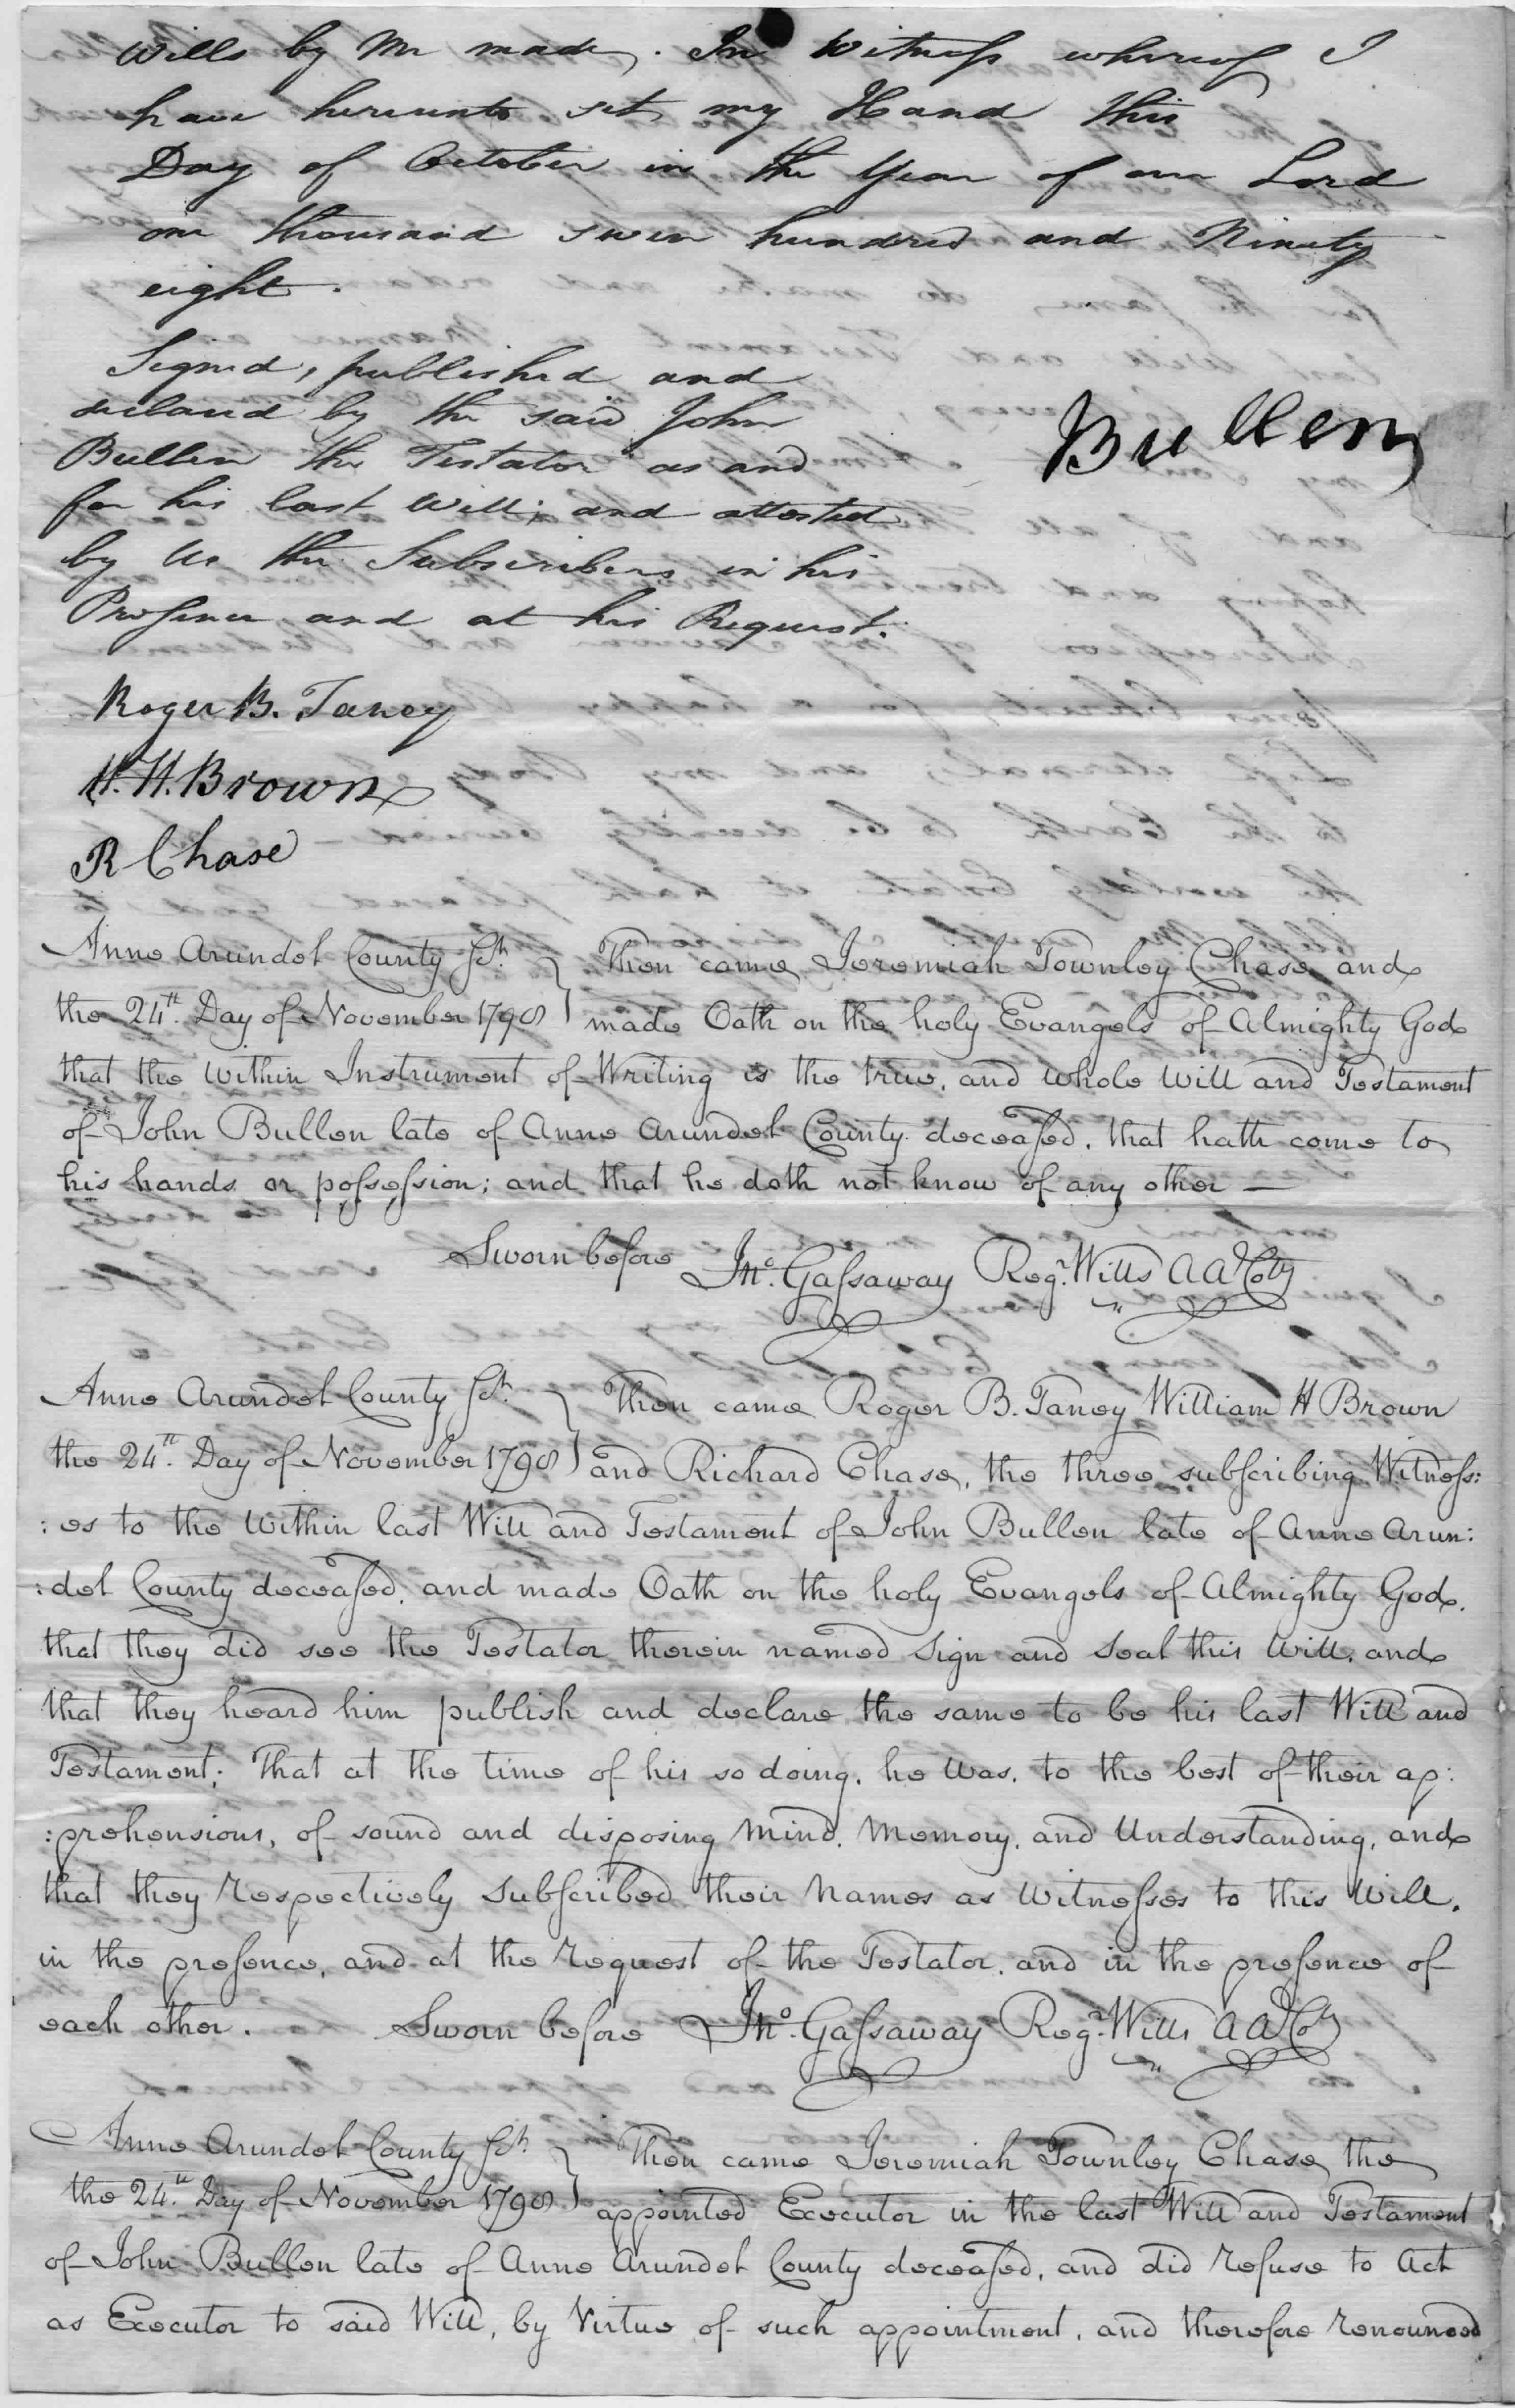 Wills by Me made. In Witness whereof I
have hereunto set my Hand this
Day of October in the Year of our Lord
one thousand seven hundred and Ninety
eight.
Signed, published and
declared by the said John
Bullen the Testator as and
for his last Will; and attested
by Us the Subscribers in his
Presence and at his Request.
Bullen
Roger B. Taney
W. H. Brown
R Chase
Anne Arundel County Sct. } Then came Jeremiah Townley Chase and
the 24th. Day of November 1798 } made Oath on the holy Evangels of Almighty God
that the within Instrument of Writing is the true, and whole Will and Testament
of John Bullen late of Anne Arundel County deceased, that hath come to
his hands or possession; and that he doth not know of any other —
Sworn before Jno. Gassaway Regr. Wills A A Coty
Anne Arundel County Sct. } Then came Roger B. Taney William H Brown
the 24th. Day of November 1798 } and Richard Chase, the three subscribing Witness:
:es to the within last Will and Testament of John Bullen late of Anne Arun:
:del County deceased, and made Oath on the holy Evangels of Almighty God,
that they did see the Testator therein named sign and seal this Will, and
that they heard him publish and declare the same to be his last Will and
Testament; That at the time of his so doing, he was, to the best of their ap:
:prehensions, of sound and disposing Mind, Memory, and Understanding, and
that they respectively subscribed their Names as Witnesses to this Will,
in the presence, and at the request of the Testator, and in the presence of
each other. Sworn before Jno. Gassaway Regr. Wills A A Coty
Anne Arundel County Sct. } Then came Jeremiah Townley Chase the
the 24th. Day of November 1798 } appointed Executor in the last Will and Testament
of John Bullen late of Anne Arundel County deceased, and did refuse to Act
as Executor to said Will, by Virtue of such appointment, and therefore renounced